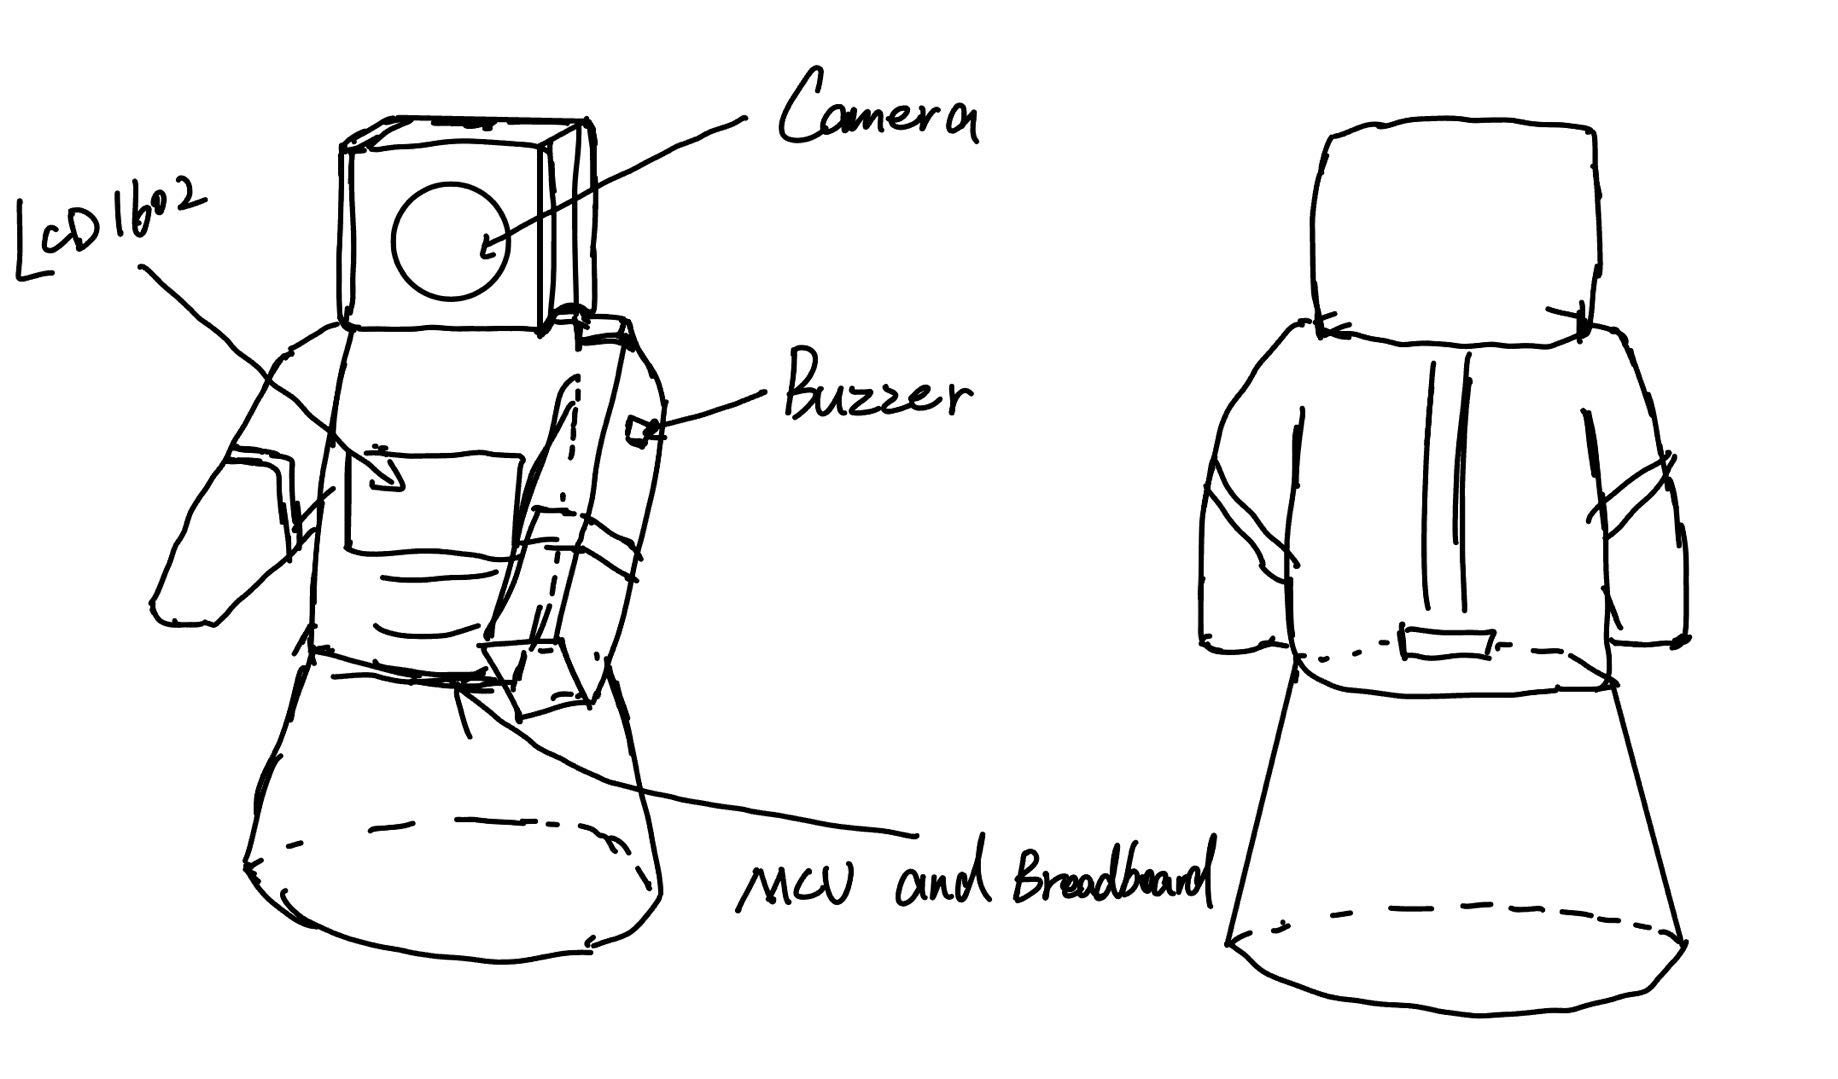 Camera
LCD1602
Buzzer
MCU and Breadboard